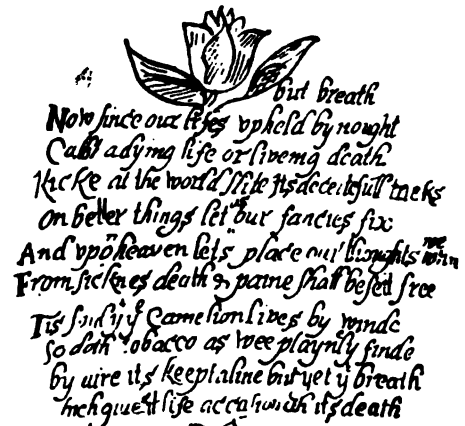 but breath
Now since our lifes vpheld by nought
Call a dying life or liveing death
Kicke at the world slite its deceitfull tricks
On better things let us our fancies fix
And vpō heaven lets place our thoughts we
From sicknes death & paine shall be set free
Tis said yt ye Camelion lives by winde
so doth Tobacco as wee playnly finde
by aire its kept aliue but yet yt breath
giues it life its death